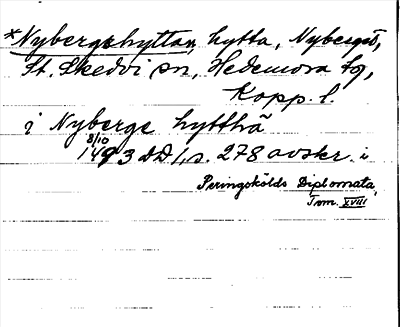 *Nybergshyttan, hytta, Nyberget,
St. Skedvi sn, Hedemora tg,
Kopp. l.
i Nyberge hytthä
8/10
1493 DD 1, s. 278 avskr. i
Peringskölds Diplomata,
Tom. XVIII